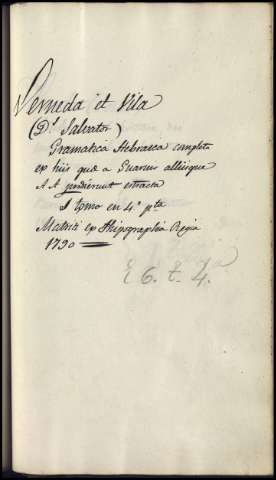 Verneda et Vila
(Dr. Salvator)
Gramatica Hebraica completa
ex his quæ a Guarin aliisque
A A prodierunt extracta
1 tomo en 4º pta
Matriti ex Thipographia Regia
1790
E 6. t. 4.